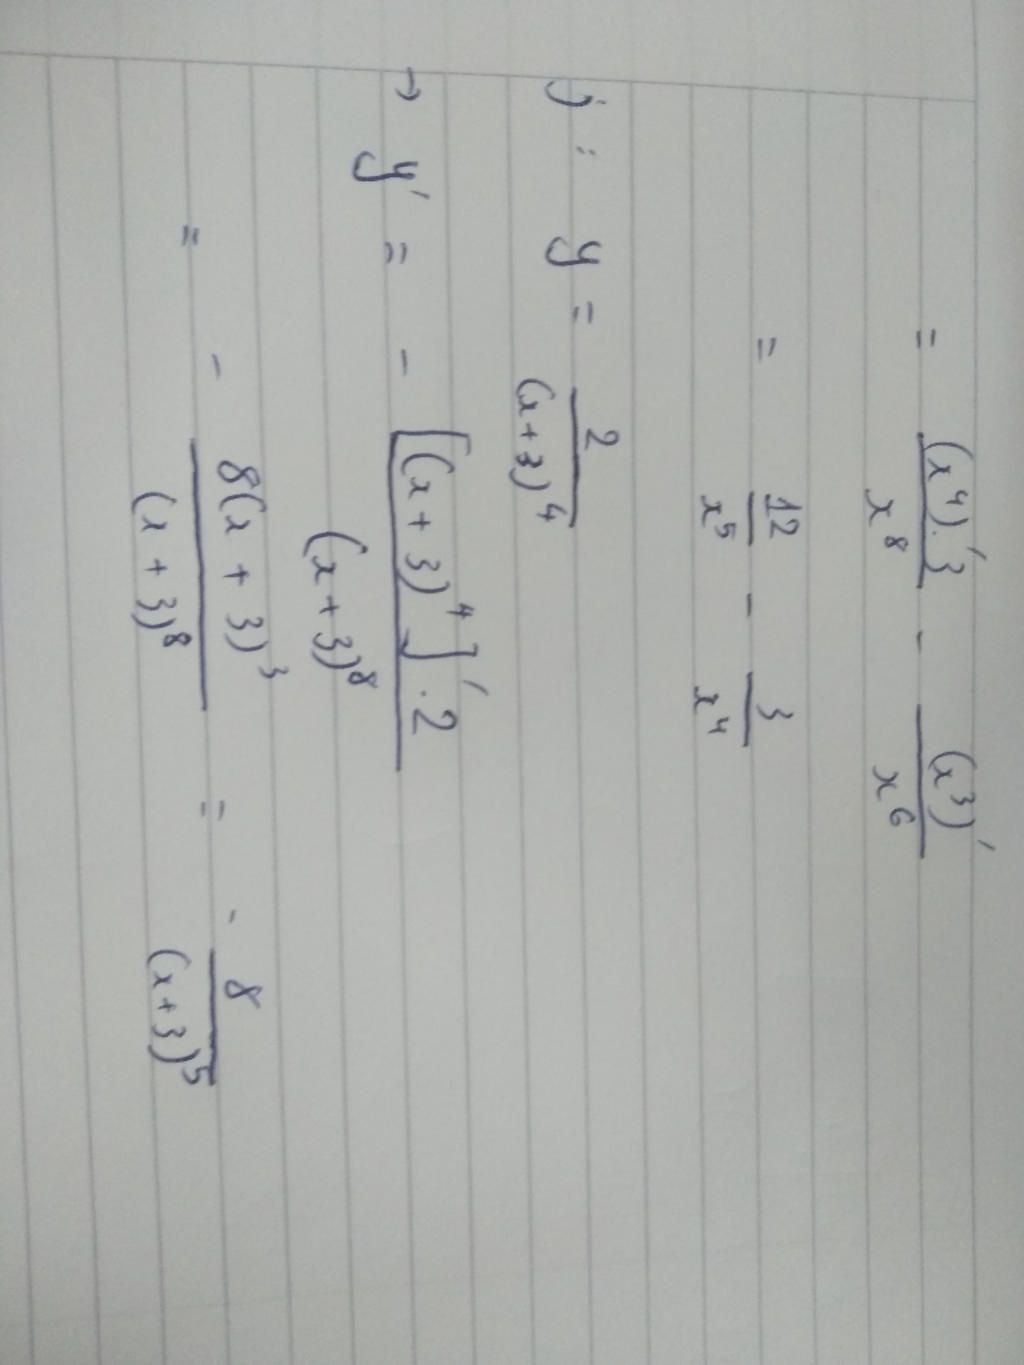 = (x⁴)'.3 / x⁸ - (x³)' / x⁶
= 12 / x⁵ - 3 / x⁴
j: y = 2 / (x+3)⁴
→ y' = - [(x+3)⁴]' . 2 / (x+3)⁸
= - 8(x+3)³ / (x+3)⁸ = - 8 / (x+3)⁵